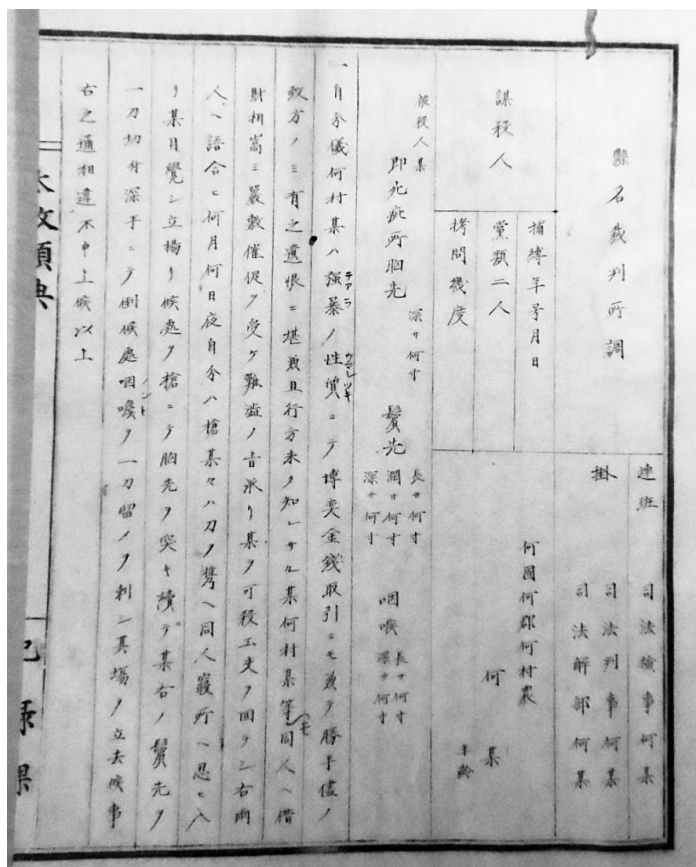 縣名裁判所調
連班 司法檢事何某
掛 司法判事何某
司法解部何某
捕縛年号月日
黨類二人
拷問幾度
謀殺人
何國何郡何村農
何某
年齢
被殺人某
即死疵所胸先 深サ何寸
鬢先 長サ何寸 濶サ何寸 深サ何寸
咽喉 長サ何寸 深サ何寸
一自分儀何村某ハ強暴ノ性質ニテ博奕金錢取引ニモ兼テ勝手儘ノ
致方ノミ有之遺恨ニ堪兼且行方未タ知レサル某何村某等モ同人ヘ借
財相嵩ミ嚴敷催促ヲ受ケ難澁ノ旨承リ某ヲ可殺工夫ヲ回ラシ右両
人ヘ語合ヒ何月何日夜自分ハ槍某々ハ刀ヲ携ヘ同人寢所ヘ忍ヒ入
リ某目覺シ立揚リ候處ヲ槍ニテ胸先ヲ突キ續テ某右ノ鬢先ヲ
一刀切付深手ニテ倒候處咽喉ヲ一刀留メヲ刺シ其場ヲ立去候事
右之通相違不申上候以上
太政類典
記録課